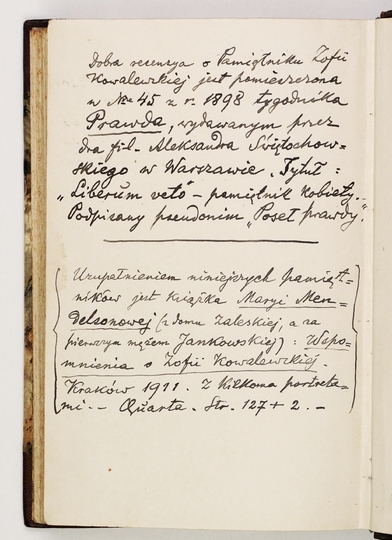 Dobra recenzya o Pamiętniku Zofii
Kowalewskiej jest pomieszczona
w Nrze 45 z r. 1898 tygodnika
Prawda, wydawanym przez
dra fil. Aleksandra Świętochow=
skiego w Warszawie. Tytuł:
„Liberum veto" – pamiętnik kobiety.–
Podpisany pseudonim „Poseł prawdy."
Uzupełnieniem niniejszych pamięt=
ników jest książka Maryi Men=
delsonowej (z domu Zaleskiej, a za
pierwszym mężem Jankowskiej): Wspo=
mnienia o Zofii Kowalewskiej.
Kraków 1911. Z kilkoma portreta=
mi. – Quarta. Str. 127 + 2. –